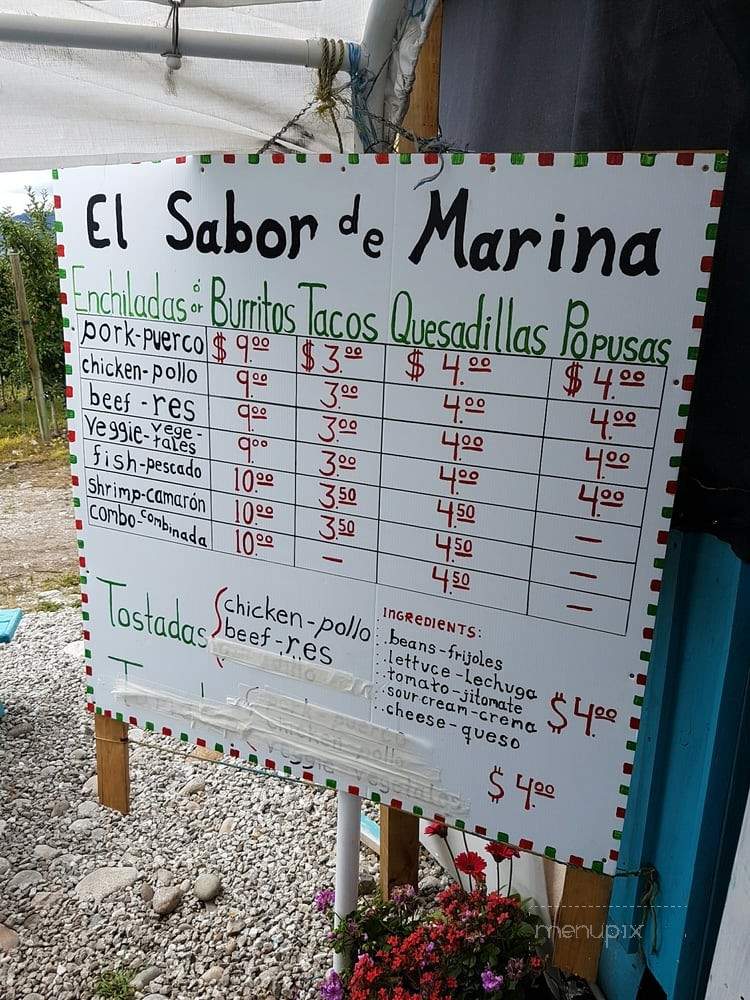 El Sabor de Marina
Enchiladas ó or Burritos Tacos Quesadillas Popusas
pork-puerco $9.00 $3.00 $4.00 $4.00
chicken-pollo 9.00 3.00 4.00 4.00
beef-res 9.00 3.00 4.00 4.00
Veggie-vege-
tales 9.00 3.00 4.00 4.00
fish-pescado 10.00 3.50 4.50 —
shrimp-camarón 10.00 3.50 4.50 —
combo-combinada 10.00 — 4.50 —
Tostadas
chicken-pollo
beef-res
INGREDIENTS:
beans-frijoles
lettuce-Lechuga
tomato-jitomate
sour cream-crema
cheese-queso
$4.00
chicken pollo
veggie vegetales
$4.00
menupix